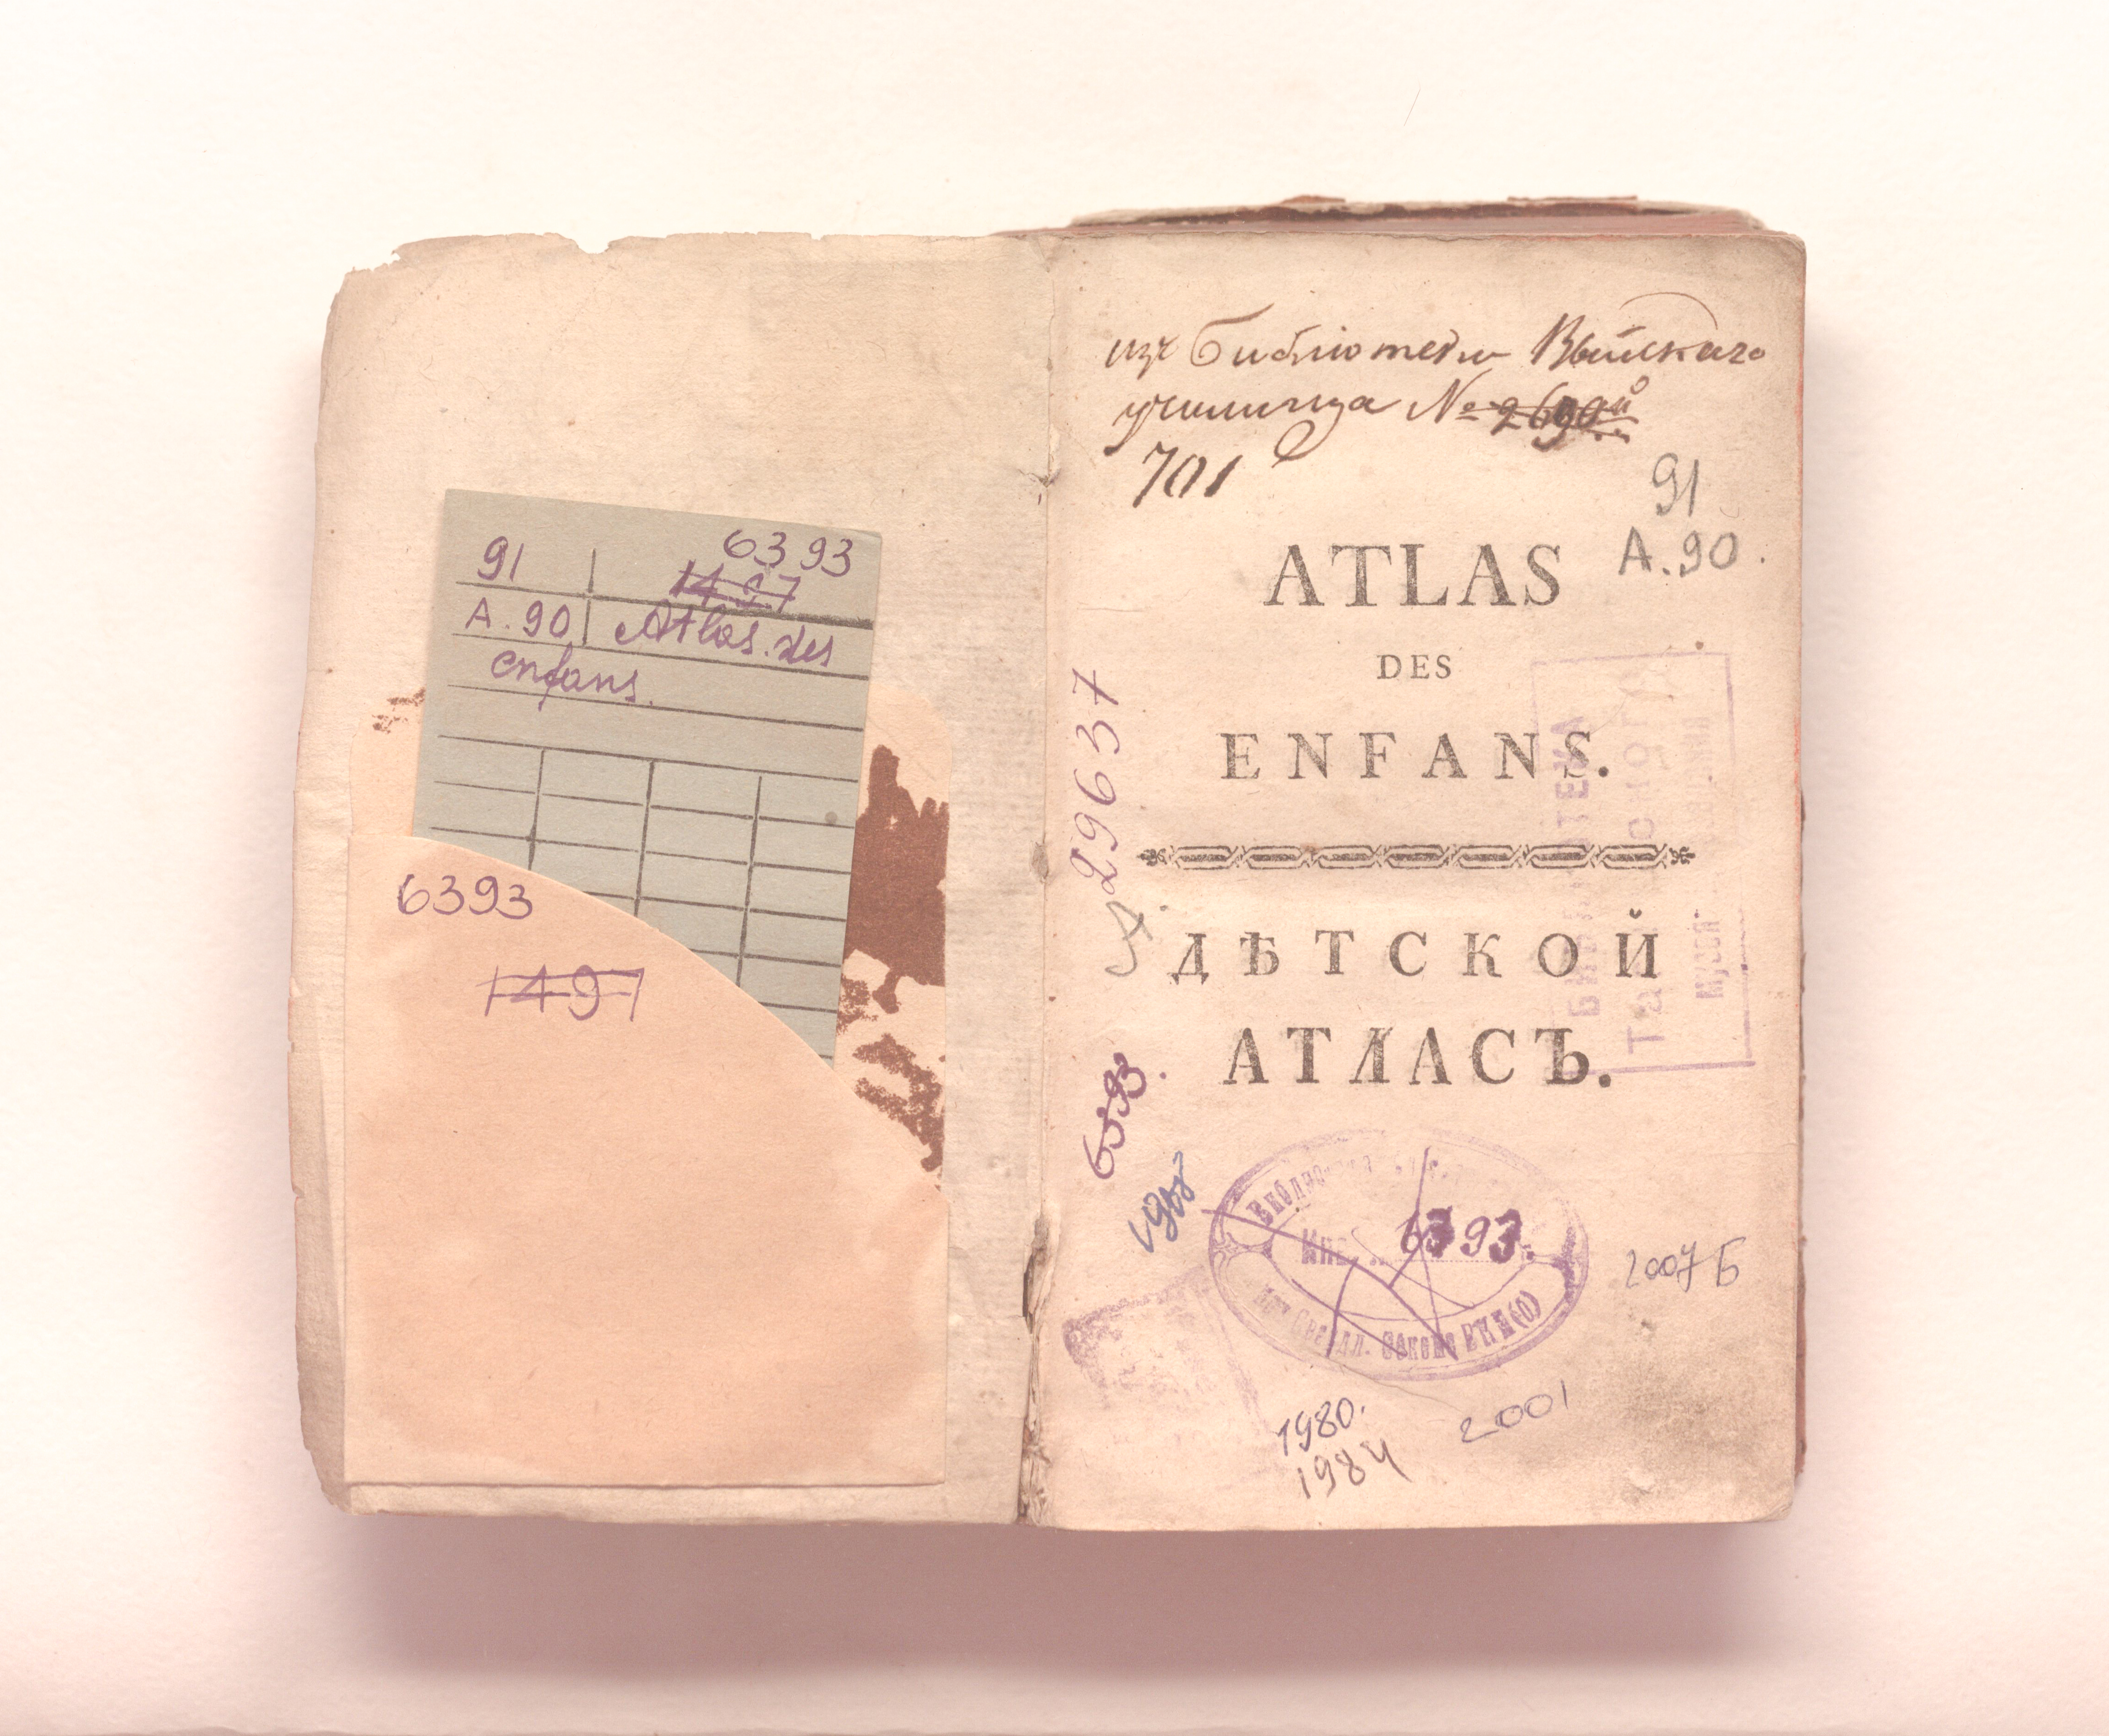 91
6393
1497
A.90
Atlas.des
enfans.
6393
1497
изъ Библіотеки Выйскаго
училища № 2690й
701
91
A.90.
ATLAS
DES
ENFANS.
ДѢТСКОЙ
АТЛАСЪ.
А. 29637
6393.
6393.
Инв.
Свердл. ВЦИК(О)
БИБЛИОТЕКА
2007 Б
1980.
1984
2001